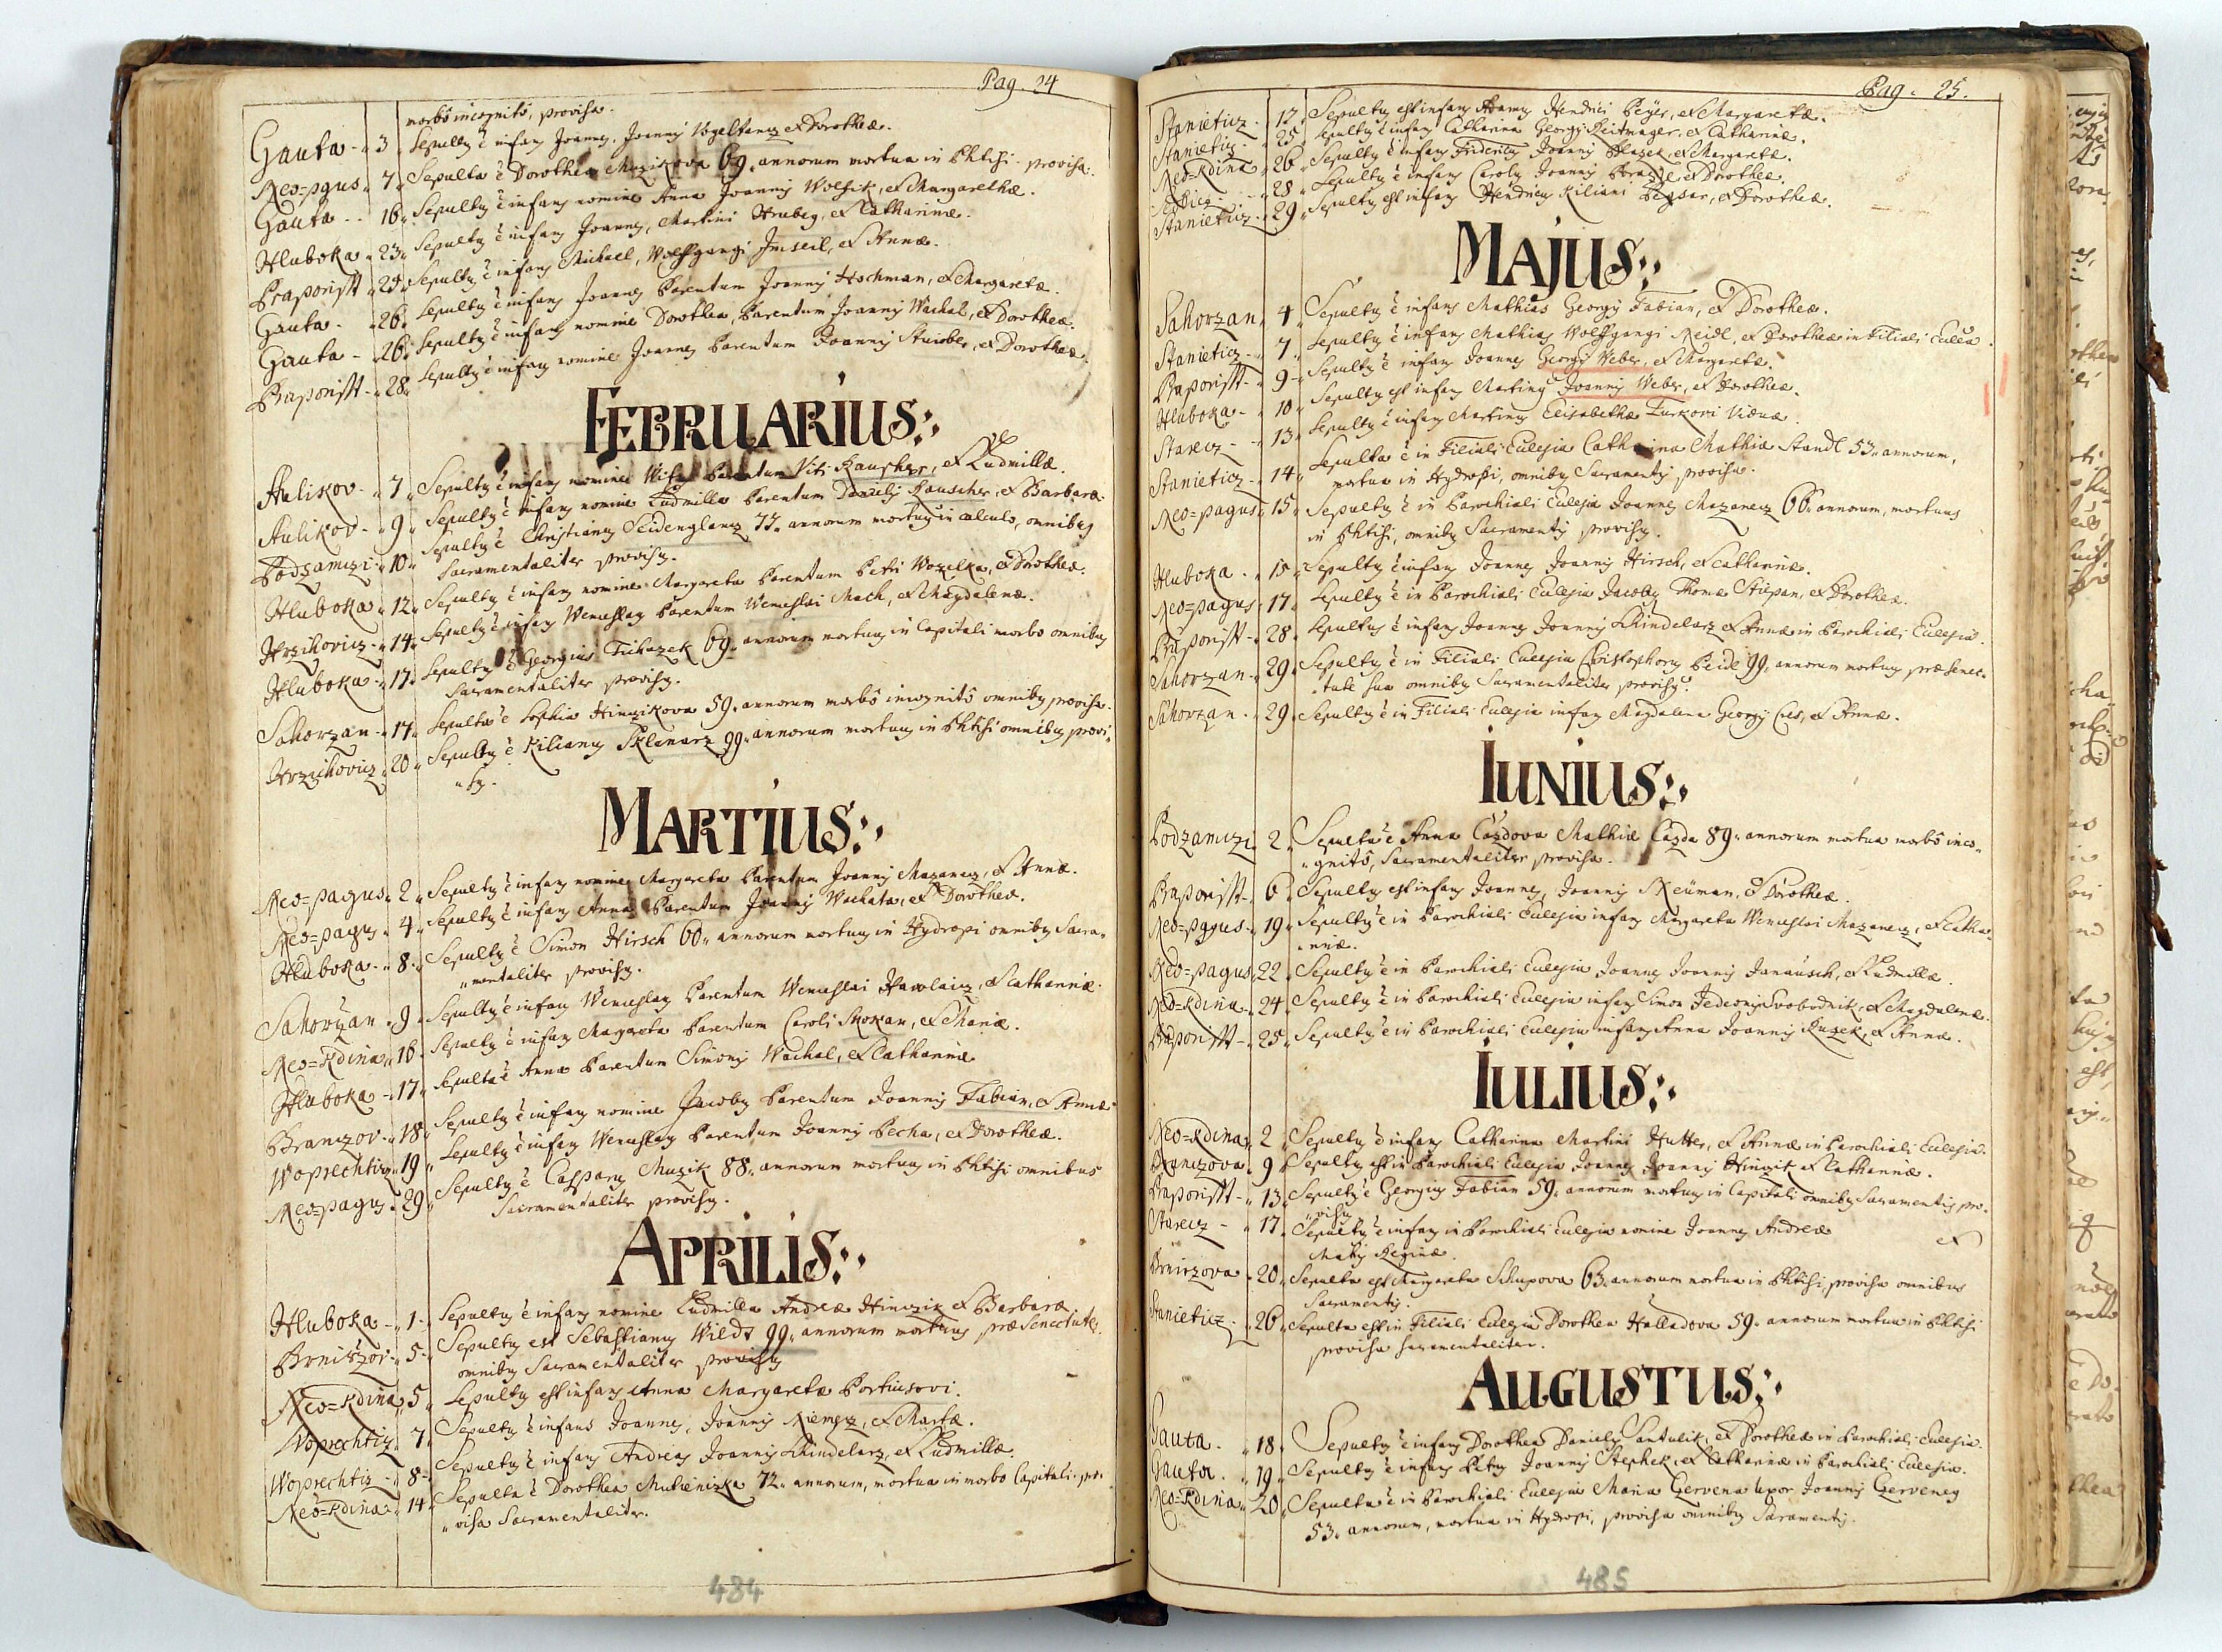 Pag. 24
morbo incognito, provisa.
Gauta - 3 Sepultq ē infans Joannes, Joannis Vogeltanz et Dorotheæ.
Neo=pgus 7 Sepulta ē Dorothea Muzikova 69. annorum mortua in Phtisi provisa.
Gauta - 16 Sepultq ē infans nomine Anna Joannis Wolfik, et Margarethæ.
Hluboka 23 Sepultq ē infans Joannes, Martini Hrubeg, et Catharinæ.
Praporisst 25 Sepultq ē infans Michael, Wolffgangi Imseil, et Annæ.
Gauta - 26 Sepultq ē infans Joannes Parentum Joannis Hochman, et Margaretæ.
Gauta - 26 Sepultq ē infans nomine Dorothea, Parentum Joannis Wachal, et Dorotheæ.
Praporisst - 28 Sepultq ē infans nomine Joannes Parentum Joannis Stuiber, et Dorotheæ.
FEBRUARIUS:
Aulikov - 7 Sepultq ē infans nomine Parentum Viti Rauscher, et Ludmillæ.
Aulikov - 9 Sepultq ē infans nomine Ludmilla Parentum Danielis Rauscher, et Barbaræ.
Podzamczi 10 Sepultq ē Christianq Seidenglanz 77. annorum mortuq in calculo, omnibq
Sacramentaliter provisq.
Hluboka 12 Sepultq ē infans nomine Margareta Parentum Petri Wozelka, et Dorotheæ.
Hrzichovicz 14 Sepultq ē infans Wenceslaq Parentum Wenceslai Mach, et Magdalenæ.
Hluboka 17 Sepultq ē Georgius Tichazek 69. annorum mortuq in Capitali morbo omnibq
Sacramentaliter provisq.
Sahorzan 17 Sepulta ē Sophia Hinczikova 59. annorum morbo incognito omnibq provisa.
Hrzichovicz 20 Sepultq ē Kilianq Sklenarz 99. annorum mortuq in Phtisi omnibq provi"
"sq.
MARTIUS:
Neo=pagus 2 Sepultq ē infans nomine Margareta Parentum Joannis Mazanecz, et Annæ.
Neo=pagq 4 Sepultq ē infans Anna Parentum Joannis Wachata, et Dorotheæ.
Hluboka 8 Sepultq ē Simon Hirsch 60. annorum mortuq in Hydropi omnibq Sacra"
"mentaliter provisq.
Sahorzan 9 Sepultq ē infans Wenceslaq Parentum Wenceslai Hawlicz, et Catharinæ.
Neo=Kdina 16 Sepultq ē infans Margareta Parentum Caroli Skokan, et Mariæ.
Hluboka 17 Sepulta ē Anna Parentum Simonis Wachal, et Catharinæ
Branczov 18 Sepultq ē infans nomine Jacobq Parentum Joannis Fabian, et Annæ
Woprechtiz 19 Sepultq ē infans Wenceslaq Parentum Joannis Pecha, et Dorotheæ.
Neo=pagq 29 Sepultq ē Casparq Muzik 88. annorum mortuq in Phtisi omnibus
Sacramentaliter provisq.
APRILIS:
Hluboka - 1 Sepultq ē infans nomine Ludmilla Andreæ Hinczik et Barbaræ
Brniczov 5 Sepultq est Sebastianq Wildt 99. annorum mortuus præ Senectute,
omnibq Sacramentaliter provisq
Neo=Kdina 5 Sepultq est infans Anna Margaretæ Portiusovi.
Woprechtiz 7 Sepultq ē infans Joannes, Joannis Niemecz, et Martæ.
Woprechtiz 8 Sepultq ē infans Andreas Joannis Schindelarz, et Ludmillæ.
Neo=Kdina 14 Sepulta ē Dorothea 72. annorum, mortua in morbo Capitali pro"
"visa Sacramentaliter.
484
Pag. 25.
Stanieticz 17 Sepultq est infans Adamq Hendrici Beyer, et Margaretæ.
Stanieticz 25 Sepultq ē infans Catharina Georgij Reitmayer et Catharinæ.
Neo=Kdina 26 Sepultq ē infans Fridericq Joannis Blazek, et Margaretæ.
28 Sepultq ē infans Carolq Joannis et Dorotheæ.
Stanieticz 29 Sepultq est infans Hendricq Kiliani et Dorotheæ.
MAJUS:
Sahorzan 4 Sepultq ē infans Mathias Georgij Fabian, et Dorotheæ.
Stanieticz 7 Sepultq ē infans Mathias Wolffgangi Neidl, et Dorotheæ in Filiali Eccla.
Praporisst 9 Sepultq ē infans Joannes Georgij Weber, et Margaretæ.
Hluboka 10 Sepultq est infans Martinq Joannis Weber, et Dorotheæ.
Starecz - 13 Sepultq ē infans Martinq Elisabethæ Turkovi Viduæ.
Stanieticz 14 Sepulta ē in Filiali Ecclesia Catharina Mathiæ Standl 53. annorum,
mortua in Hydropi, omnibq Sacramentis provisa.
Neo=pagus 15 Sepultq ē in Parochiali Ecclesia Joannes Mazanecz 66. annorum, mortuus
in Phtisi, omnibq Sacramentis provisq.
Hluboka - 15 Sepultq ē infans Joannes Joannis Hirsch, et Catharinæ.
Neo=pagus 17 Sepultq ē in Parochiali Ecclesia Jacobq Thomæ Stiepan, et Dorotheæ.
Praporisst 28 Sepultus ē infans Joannes Joannis Schindelarz et Annæ in Parochiali Ecclesia.
Sahorzan 29 Sepultq ē in Filiali Ecclesia Christophorq Beidl 99. annorum mortuq præ senec"
"tute sua omnibq Sacramentaliter provisq.
Sahorzan 29 Sepultq ē in Filiali Ecclesia infans Magdalena Georgij et Annæ.
IUNIUS:
Podzamczi 2 Sepulta ē Anna Cazdova Mathiæ Cazda 89. annorum mortua morbo inco"
"gnito, Sacramentaliter provisa.
Praporisst 6 Sepultq est infans Joannes, Joannis Neuman, et Dorotheæ.
Neo=pgus 19 Sepultq ē in Parochiali Ecclesia infans Margareta Wenceslai Mazanecz, et Catha"
"rinæ.
Neo=pagus 22 Sepultq ē in Parochiali Ecclesia Joannes Joannis Janausch, et Ludmillæ.
Neo=Kdina 24 Sepultq ē in Parochiali Ecclesia infans Simon Gedeonis Svobodnik, et Magdalenæ.
Praporisst 25 Sepultq ē in Parochiali Ecclesia infans Anna Joannis Kuzek, et Annæ.
IULIUS:
Neo=Kdina 2 Sepultq ē infans Catharina Martini Hutter, et Annæ in Parochiali Ecclesia.
Branczova 9 Sepultq est in Parochiali Ecclesia Joannes Joannis Hinczik et Catharinæ.
Praporisst 13 Sepultq ē Georgiq Fabian 59. annorum mortuq in Capitali omnibq Sacramentis pro"
"visq
Starecz - 17 Sepultq ē infans in Parochiali Ecclesia nomine Joannes Andreæ et
Matris Reginæ.
Brniczova 20 Sepulta est Margareta Schupova 63. annorum mortua in Phtisi, provisa omnibus
Sacramentis.
Stanieticz 26 Sepulta est in Filiali Ecclesia Dorothea Halladova 59. annorum mortua in Phtisi
provisa sacramentaliter.
AUGUSTUS:
Gauta. 18 Sepultq ē infans Dorothea Danielis et Dorotheæ in Parochiali Ecclesia.
Gauta. 19 Sepultq ē infans Petrq Joannis Stephek, et Catharinæ in Parochiali Ecclesia.
Neo=Kdina 20 Sepulta ē in Parochiali Ecclesia Maria Czervena Uxor Joannis Czerveneg
53. annorum, mortua in Hydropi, provisa omnibq Sacramentis.
485